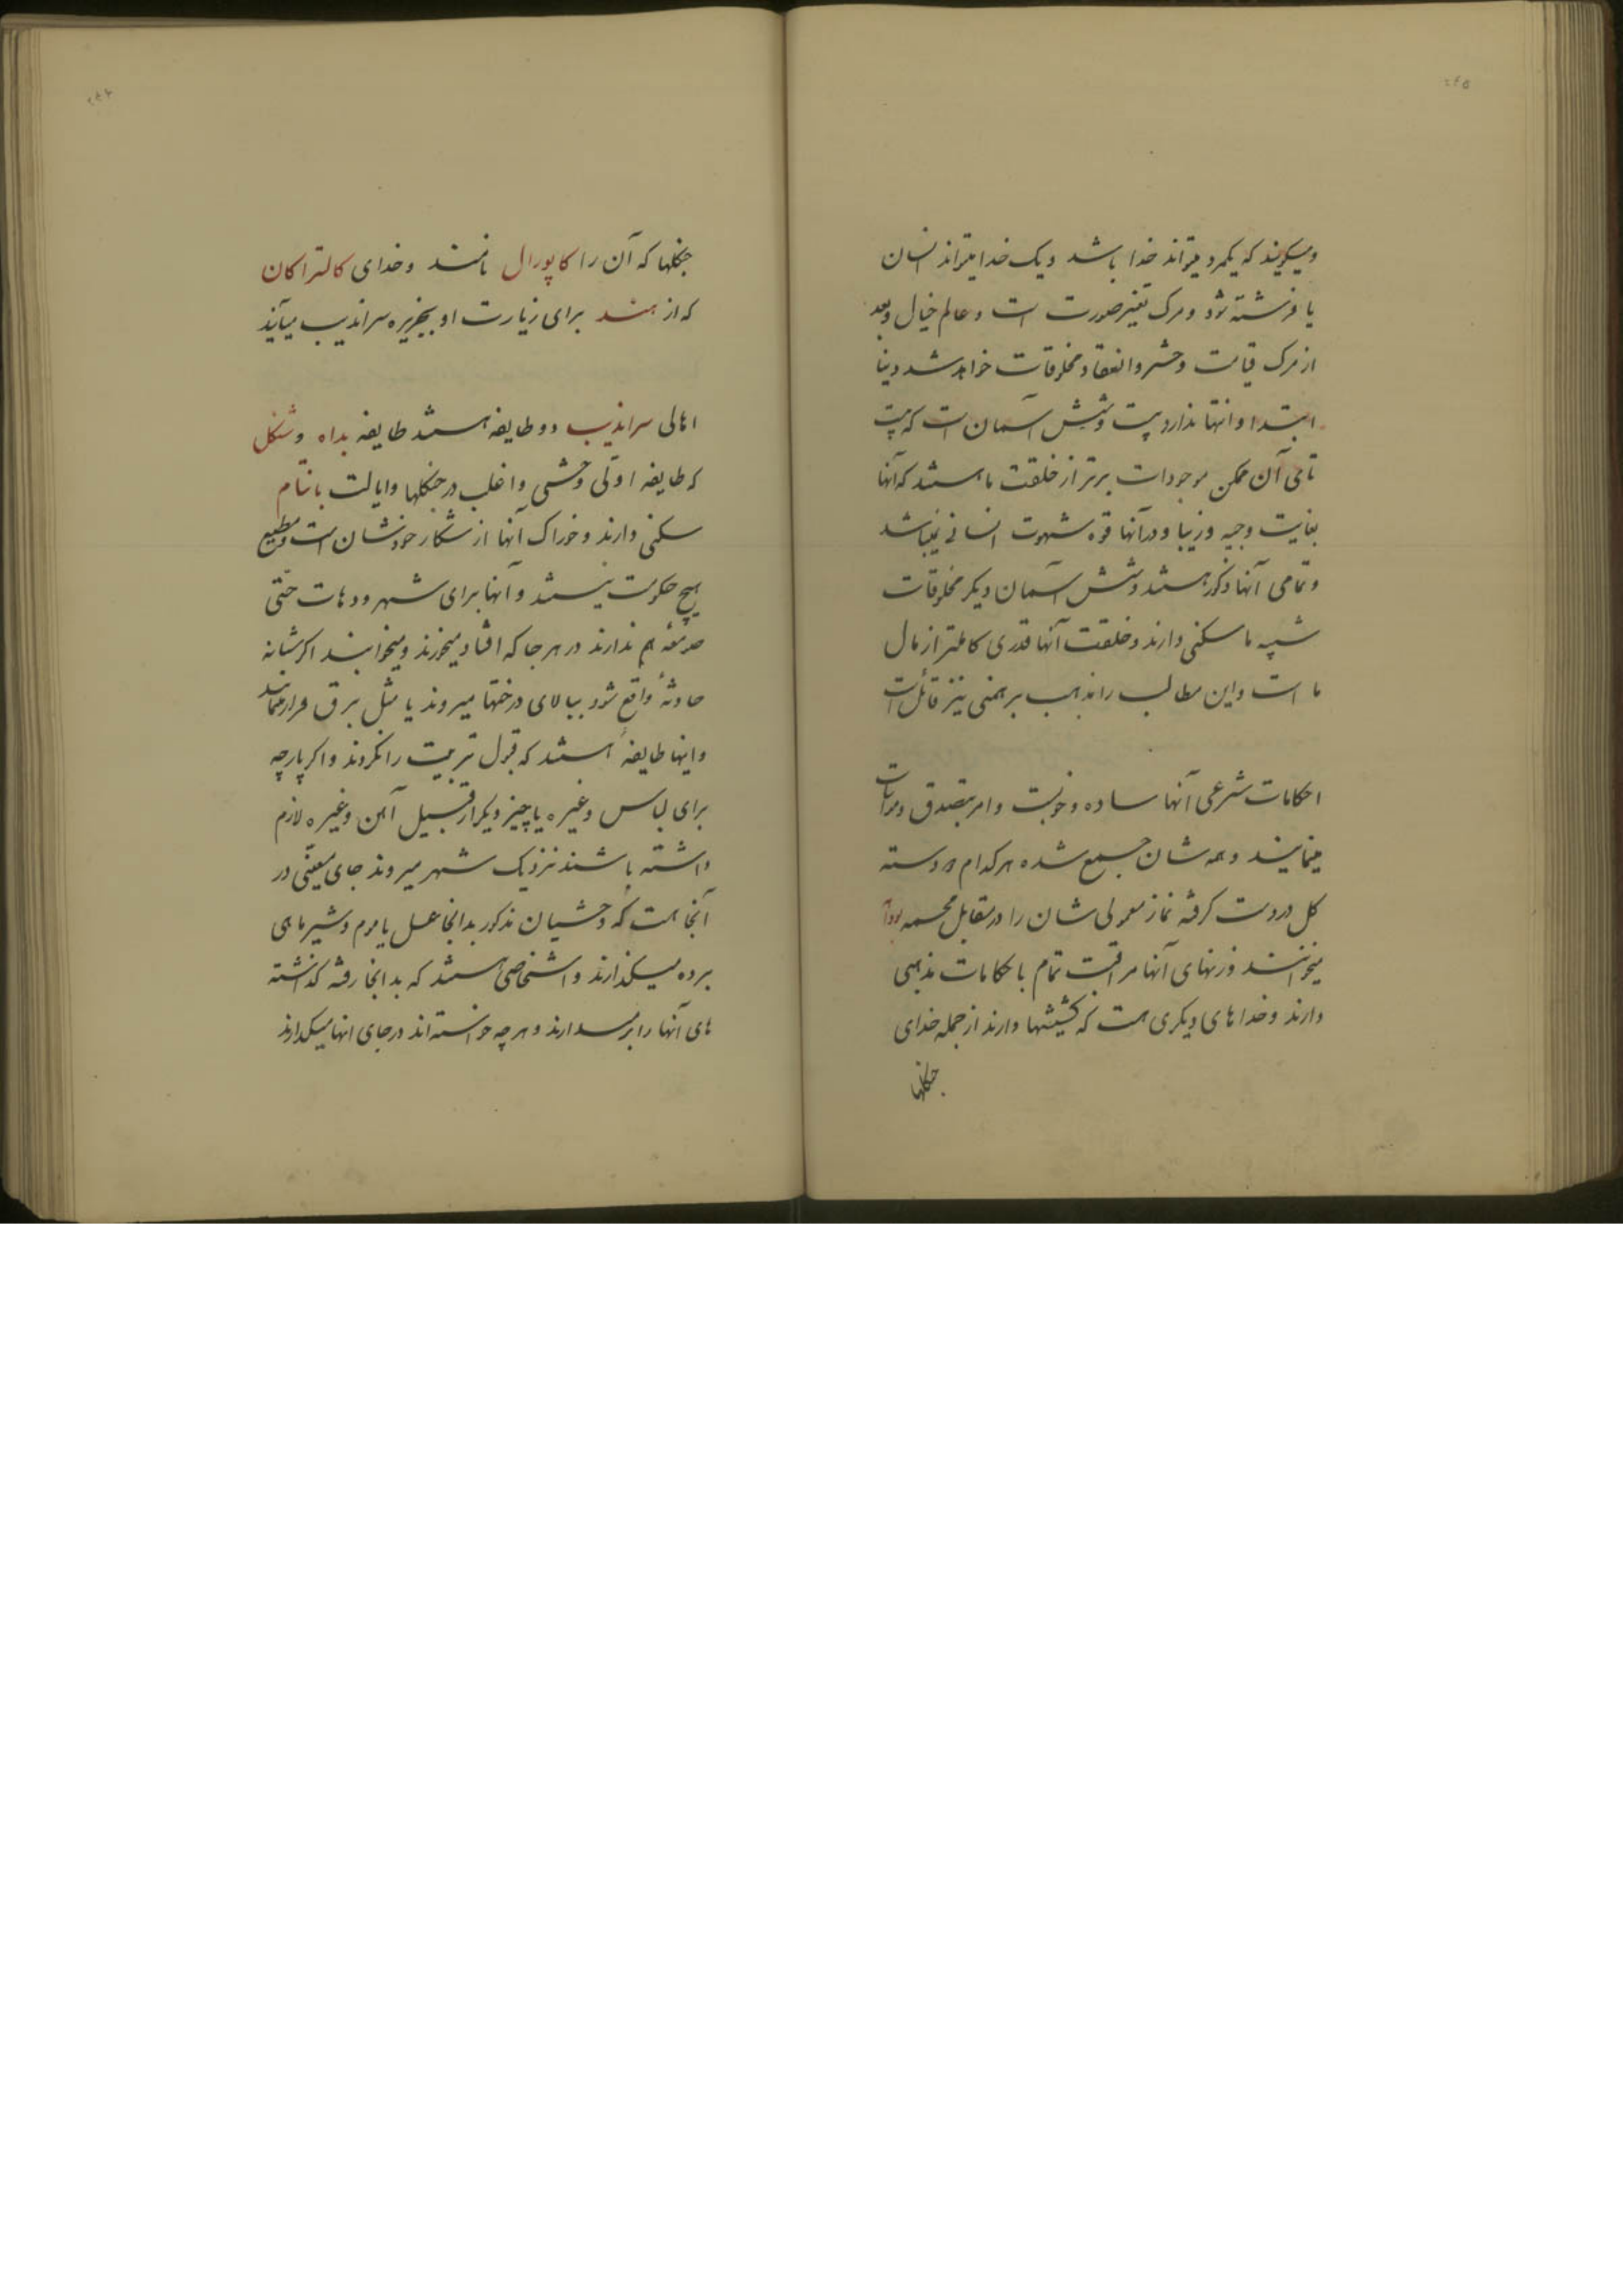 ۲۴۵
و میگویند که یکمرد میتواند خدا باشد و یک خدا میتواند انسان
یا فرشته شود و مرک تغیر صورت است و عالم خیال و بعد
از مرک قیامت و حشر و انعقاد مخلوقات خواهد شد دنیا
ابتدا و انتها ندارد بیست و شش آسمان است که بیست
تای آن ممکن موجودات برتر از خلقت ما هستند که آنها
بغایت وجیه و زیبا و در آنها قوه شهوت انسانی نمیباشد
و تمامی آنها ذکور هستند و شش آسمان دیکر مخلوقات
شبیه ما سکنی دارند و خلقت آنها قدری کاملتر از مال
ما است و این مطالب را مذهب برهمنی نیز قائل است
احکامات شرعی آنها ساده و خوبست و امر بتصدق و مراعات
مینمایند و همه شان جمیع شده هر کدام دو دسته
کل در دست کرفته نماز معمولی شان را در مقابل مجسمه بودا
میخوانند و زنهای آنها مراقبت تمام باحکامات مذهبی
دارند و خداهای دیکری هست که کشیشها دارند از جمله خدای
جنکلها
۲۴۶
جنکلها که آن را کاپورال نامند و خدای کالتراکان
که از هند برای زیارت او بجزیره سراندیب میآیند
اهالی سراندیب دو طایفه هستند طایفه بداه و شنکل
که طایفه اولی وحشی و اغلب در جنکلها و ایالت بانتام
سکنی دارند و خوراک آنها از شکار خودشان است و مطیع
هیچ حکومت نیستند و آنها برای شهر و دهات حتی
صومعه هم ندارند در هر جا که افتاد میخورند و میخوابند اکر شبانه
حادثهٔ واقع شود ببالای درختها میروند یا مثل برق فرار مینمایند
و اینها طایفهٔ هستند که قبول تربیت را نکردند و اکر پارچه
برای لباس و غیره یا چیز دیکر از قبیل آهن و غیره لازم
داشته باشند نزدیک شهر میروند جای معینی در
آنجا هست که وحشیان مذکور بدانجا عسل یا موم و شیر ماهی
برده میکذارند و اشخاصی هستند که بدانجا رفته کذاشته
های آنها را برمیدارند و هر چه خواسته اند در جای انها میکذارند